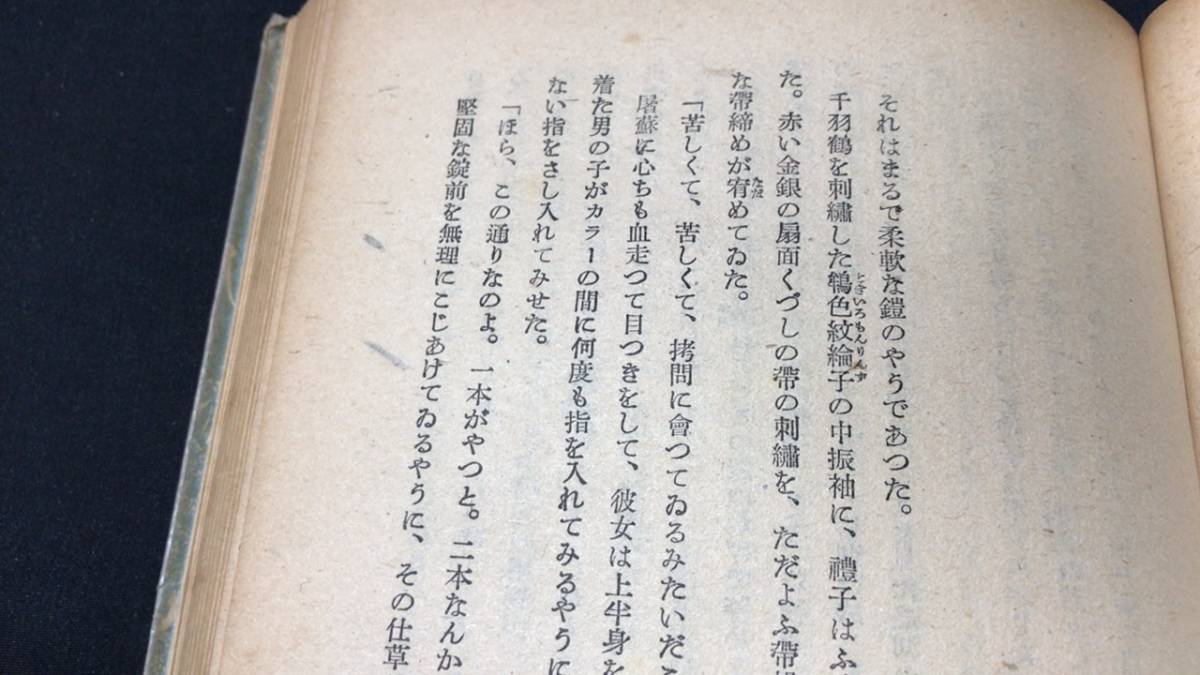 それはまるで柔軟な鎧のやうであつた。
千羽鶴を刺繡した鴾色紋綸子の中振袖に、禮子はふ
ときいろもんりんず
た。赤い金銀の扇面くづしの帶の刺繡を、ただよふ帶揚
な帶締めが宥めてゐた。
ただ
「苦しくて、苦しくて、拷問に會つてゐるみたいだ
屠蘇に心ちも血走つて目つきをして、彼女は上半身を
着た男の子がカラーの間に何度も指を入れてみるやうに
ない指をさし入れてみせた。
「ほら、この通りなのよ。一本がやつと。二本なんか
堅固な錠前を無理にこじあけてゐるやうに、その仕草